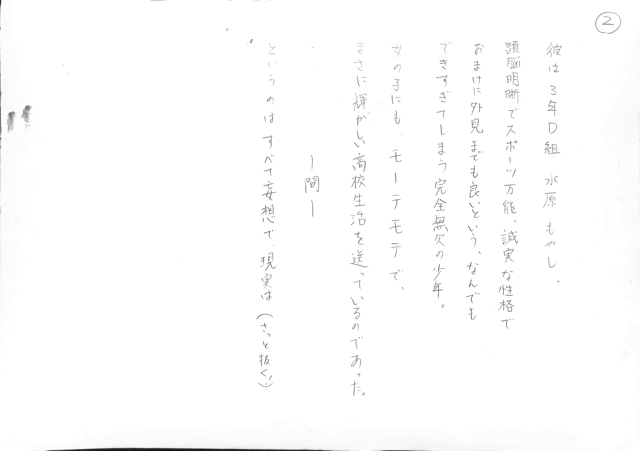 ②
彼は3年D組 水原 もやし.
頭脳明晰でスポーツ万能、誠実な性格で
おまけに外見までも良いという、なんでも
できすぎてしまう完全無欠の少年。
女の子にも、モーテモテで、
まさに輝かしい高校生活を送っているのであった。
ー間ー
というのはすべて妄想で、現実は(さっと抜く!)